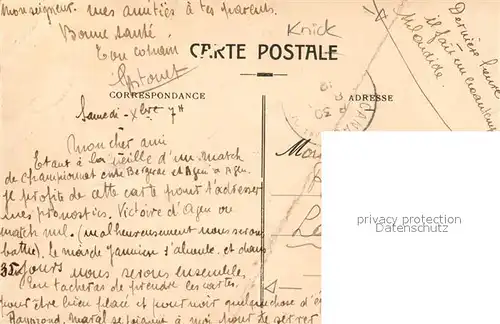 Monseigneur. mes amitiés à tes parents.
Bonne santé.
Ton copain
Knick
CARTE POSTALE
CORRESPONDANCE
ADRESSE
Dernière heure
il fait un
splendide.
Samedi - Xbre 7H
Mon cher ami
Etant à la veille d'un match
de championnat entre Bergerac et Agen à Agen.
je profite de cette carte pour t'adresser
mes pronostics. Victoire d'Agen ou
match nul. (malheureusement nous serons
battus). Le mois de Janvier s'aboule et dans
35 jours nous serons ensemble.
Tu tacheras de prendre les cartes
pour être bien placé et pour voir quelque chose
Raymond, Marcel se joignent à moi pour te serrer
privacy protection
Datenschutz